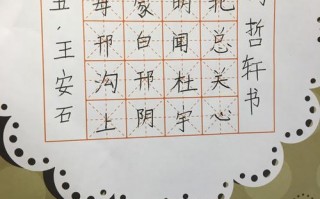 五·王安石
母邗沟上
家白邗阴
明闻杜宇
北总关心
哲轩书